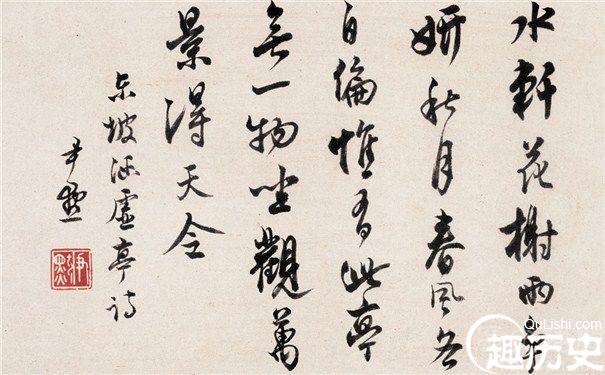 水軒花榭兩爭
妍秋月春風各
自偏惟有此亭
無一物坐觀萬
景得天全
東坡涵虛亭詩
尹默
QuLishi.com
趣历史